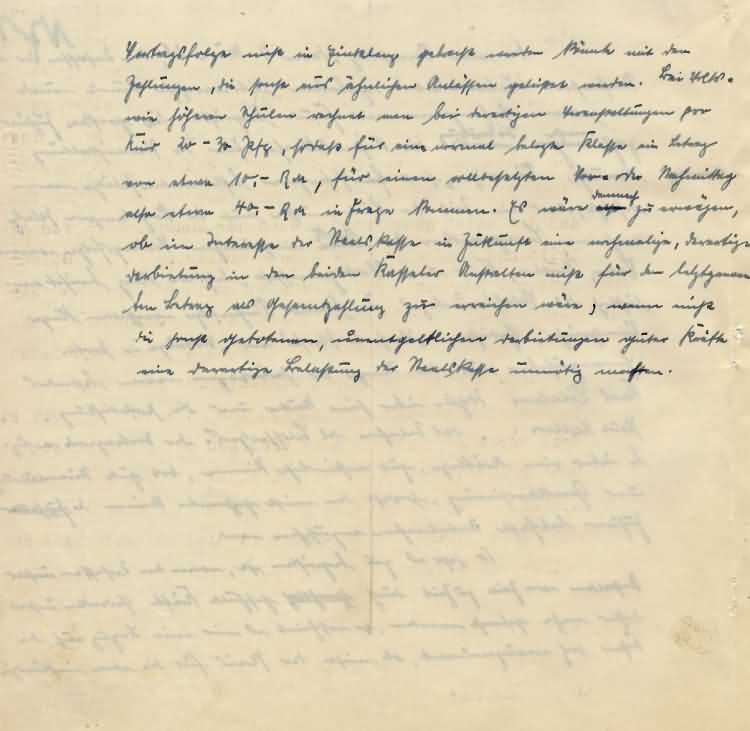 Vortragsfolge nicht in Einklang gebracht werden könnte mit den
Zahlungen, die sonst aus ähnlichen Anlässen geleistet werden. Bei Volks-
wie höheren Schulen rechnet man bei derartigen Veranstaltungen pro
Kind 20 - 30 Pfg, sodaß für eine normal belegte Klasse ein Betrag
von etwa 10,- RM, für einen vollbesetzten Vor- oder Nachmittag
also etwa 40,- RM in Frage kommen. Es wäre demnach zu erwägen,
ob im Interesse der Staatskasse in Zukunft eine nochmalige, derartige
Darbietung in den beiden Kasseler Anstalten nicht für den letztgenann
ten Betrag als Gesamtzahlung zu erreichen wäre, wenn nicht
die sonst gebotenen, unentgeltlichen Darbietungen guter Kräfte
eine derartige Belastung der Staatskasse unnötig machten.